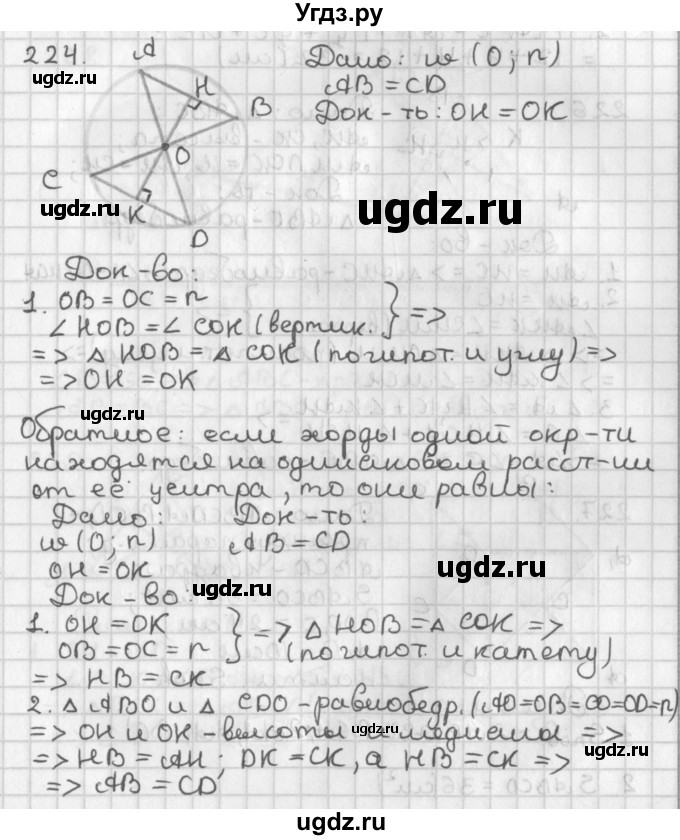 Угдз.ру
224.
Дано: w (O; r)
AB = CD
Док-ть: OH = OK
A
H
B
O
C
K
D
ugdz.ru
ugdz.ru
ugdz.ru
Док-во:
1. OB = OC = r
∠HOB = ∠COK (вертик.} =>
=> △HOB = △COK (по гипот. и углу) =>
=> OH = OK
ugdz.ru
ugdz.ru
Обратное: если хорды одной окр-ти
находятся на одинаковом расст-нии
от её центра, то они равны:
Дано: Док-ть:
w (O; r) AB = CD
OH = OK
ugdz.ru
ugdz.ru
Док-во:
1. OH = OK
OB = OC = r } => △HOB = △COK =>
(по гипот. и катету)
=> HB = CK
2. △ABO и △CDO - равнобедр. (AO=OB=CO=OD=r)
=> OH и OK - высоты и медианы =>
ugdz.ru
ugdz.ru
=> HB = AH; DK = CK, а HB = CK =>
=> AB = CD
ugdz.ru
ugdz.ru
ugdz.ru